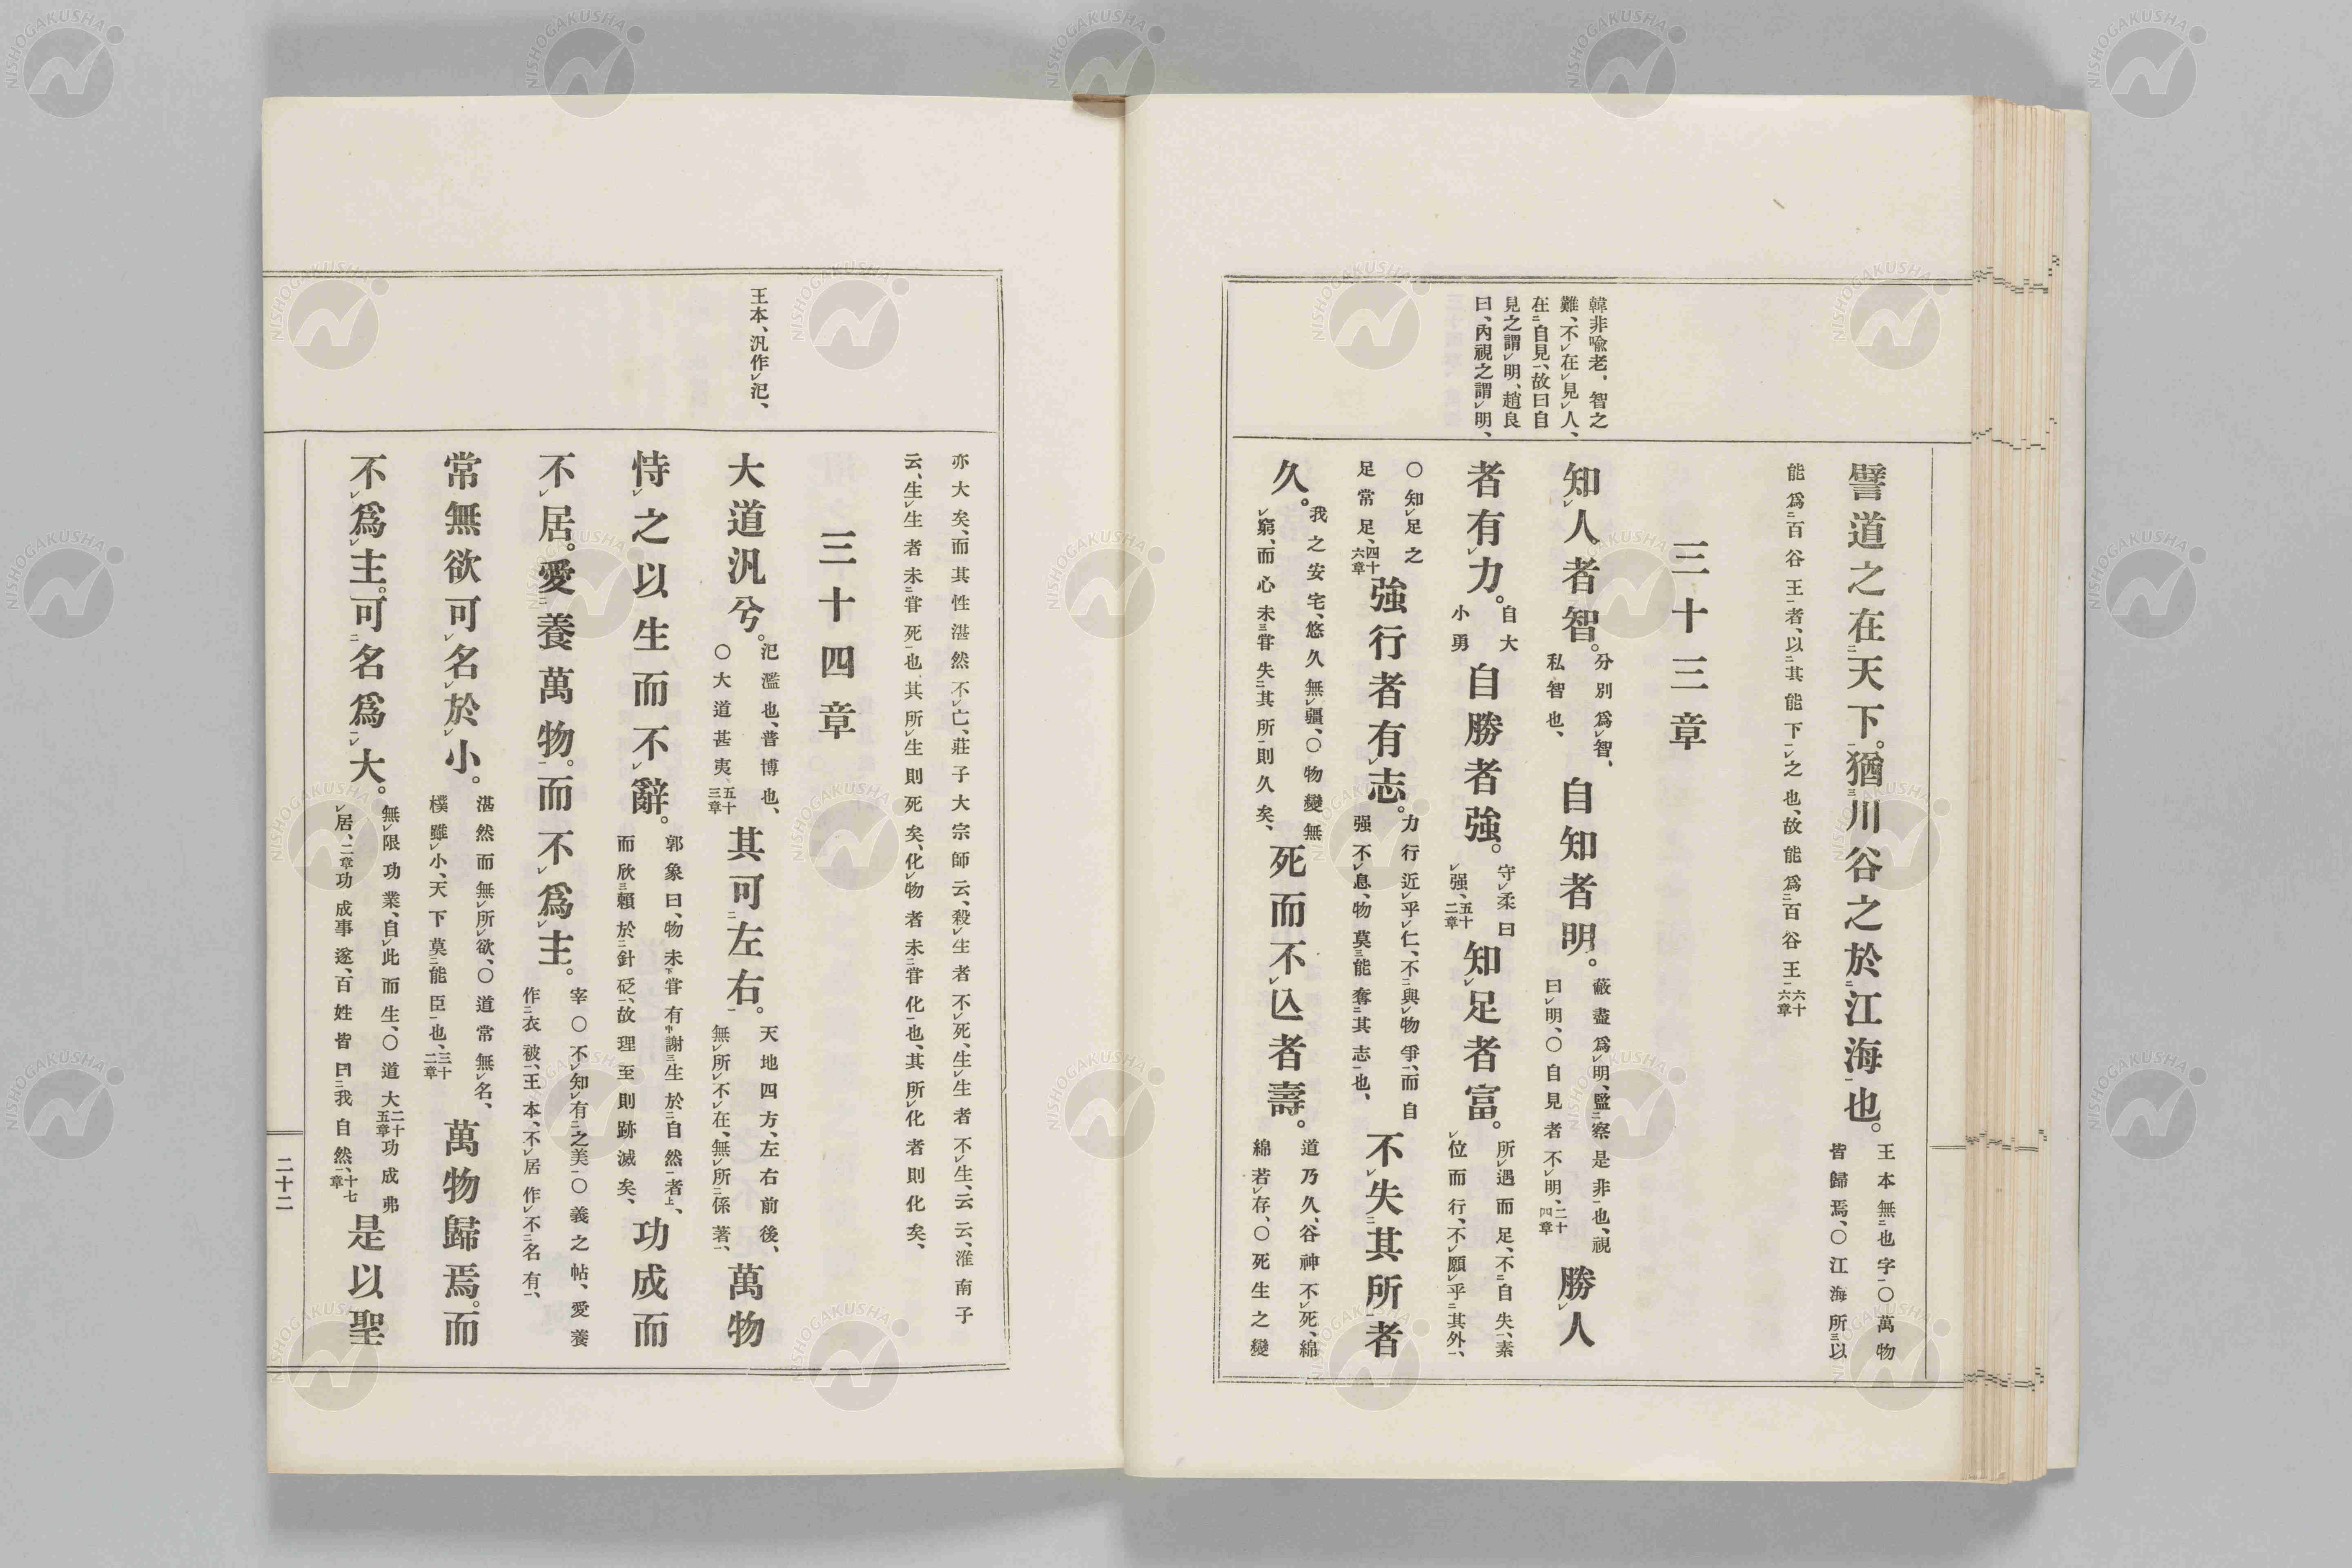 韓非喩老、智之
難、不在見人、
在自見、故曰自
見之謂明、趙良
曰、內視之謂明、
譬道之在天下。猶川谷之於江海也。
王本無也字○萬物
皆歸焉、○江海所以
能爲百谷王者、以其能下之也、故能爲百谷王六十六章
三十三章
知人者智。
分別爲智、
私智也、
自知者明。
蔽盡爲明、監察是非也、視
曰明、○自見者不明、二十四章
勝人
者有力。
自大
小勇
自勝者強。
守柔曰
强、五十二章
知足者富。
所遇而足、不自失、素
位而行、不願乎其外、
○知足之
足常足、四十六章
強行者有志。
力行近乎仁、不與物爭、而自
强不息、物莫能奪其志也、
不失其所者
久。
我之安宅、悠久無疆、○物變無
窮、而心未甞失其所則久矣、
死而不亾者壽。
道乃久、谷神不死、綿
綿若存、○死生之變
王本、汎作汜、
亦大矣、而其性湛然不亡、莊子大宗師云、殺生者不死、生生者不生、云云、淮南子
云、生生者未甞死也、其所生則死矣、化物者未甞化也、其所化者則化矣、
三十四章
大道汎兮。
汜濫也、普博也、
○大道甚夷、五十三章
其可左右。
天地四方、左右前後、
無所不在、無所係著、
萬物
恃之以生而不辭。
郭象曰、物未甞有謝生於自然者、
而欣賴於針砭、故理至則跡滅矣、
功成而
不居。愛養萬物。而不爲主。
宰○不知有之美○義之帖、愛養
作衣被、王本、不居作不名有、
常無欲可名於小。
湛然而無所欲、○道常無名、
樸雖小、天下莫能臣也、三十二章
萬物歸焉。而
不爲主。可名爲大。
無限功業、自此而生、○道大二十五章功成弗
居、二章功成事遂、百姓皆曰我自然、十七章
是以聖
二十二
NISHOGAKUSHA